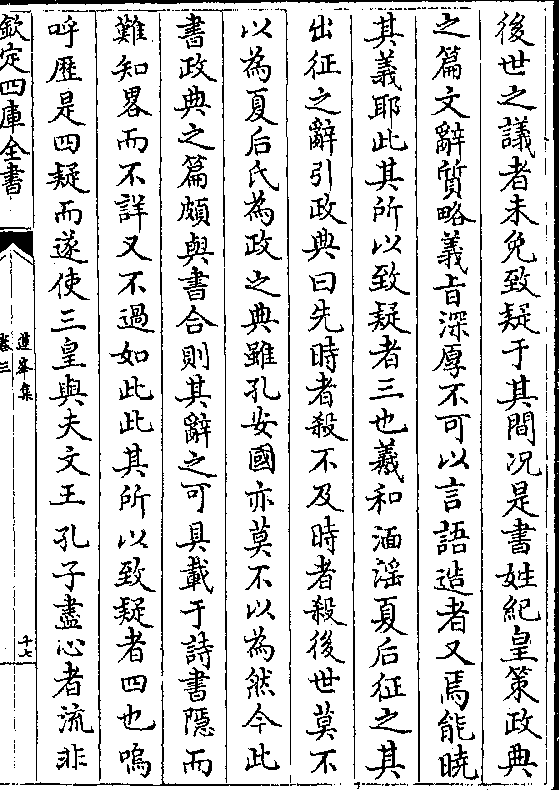 後世之議者未免致疑于其間况是書姓紀皇策政典
之篇文辭質略義旨深厚不可以言語造者又焉能曉
其義耶此其所以致疑者三也羲和湎淫夏后征之其
出征之辭引政典曰先時者殺不及時者殺後世莫不
以為夏后氏為政之典雖孔安國亦莫不以為然今此
書政典之篇頗與書合則其辭之可具載于詩書隱而
難知畧而不詳又不過如此此其所以致疑者四也嗚
呼歴是四疑而遂使三皇與夫文王孔子盡心者流非
欽定四庫全書
卷三
十七